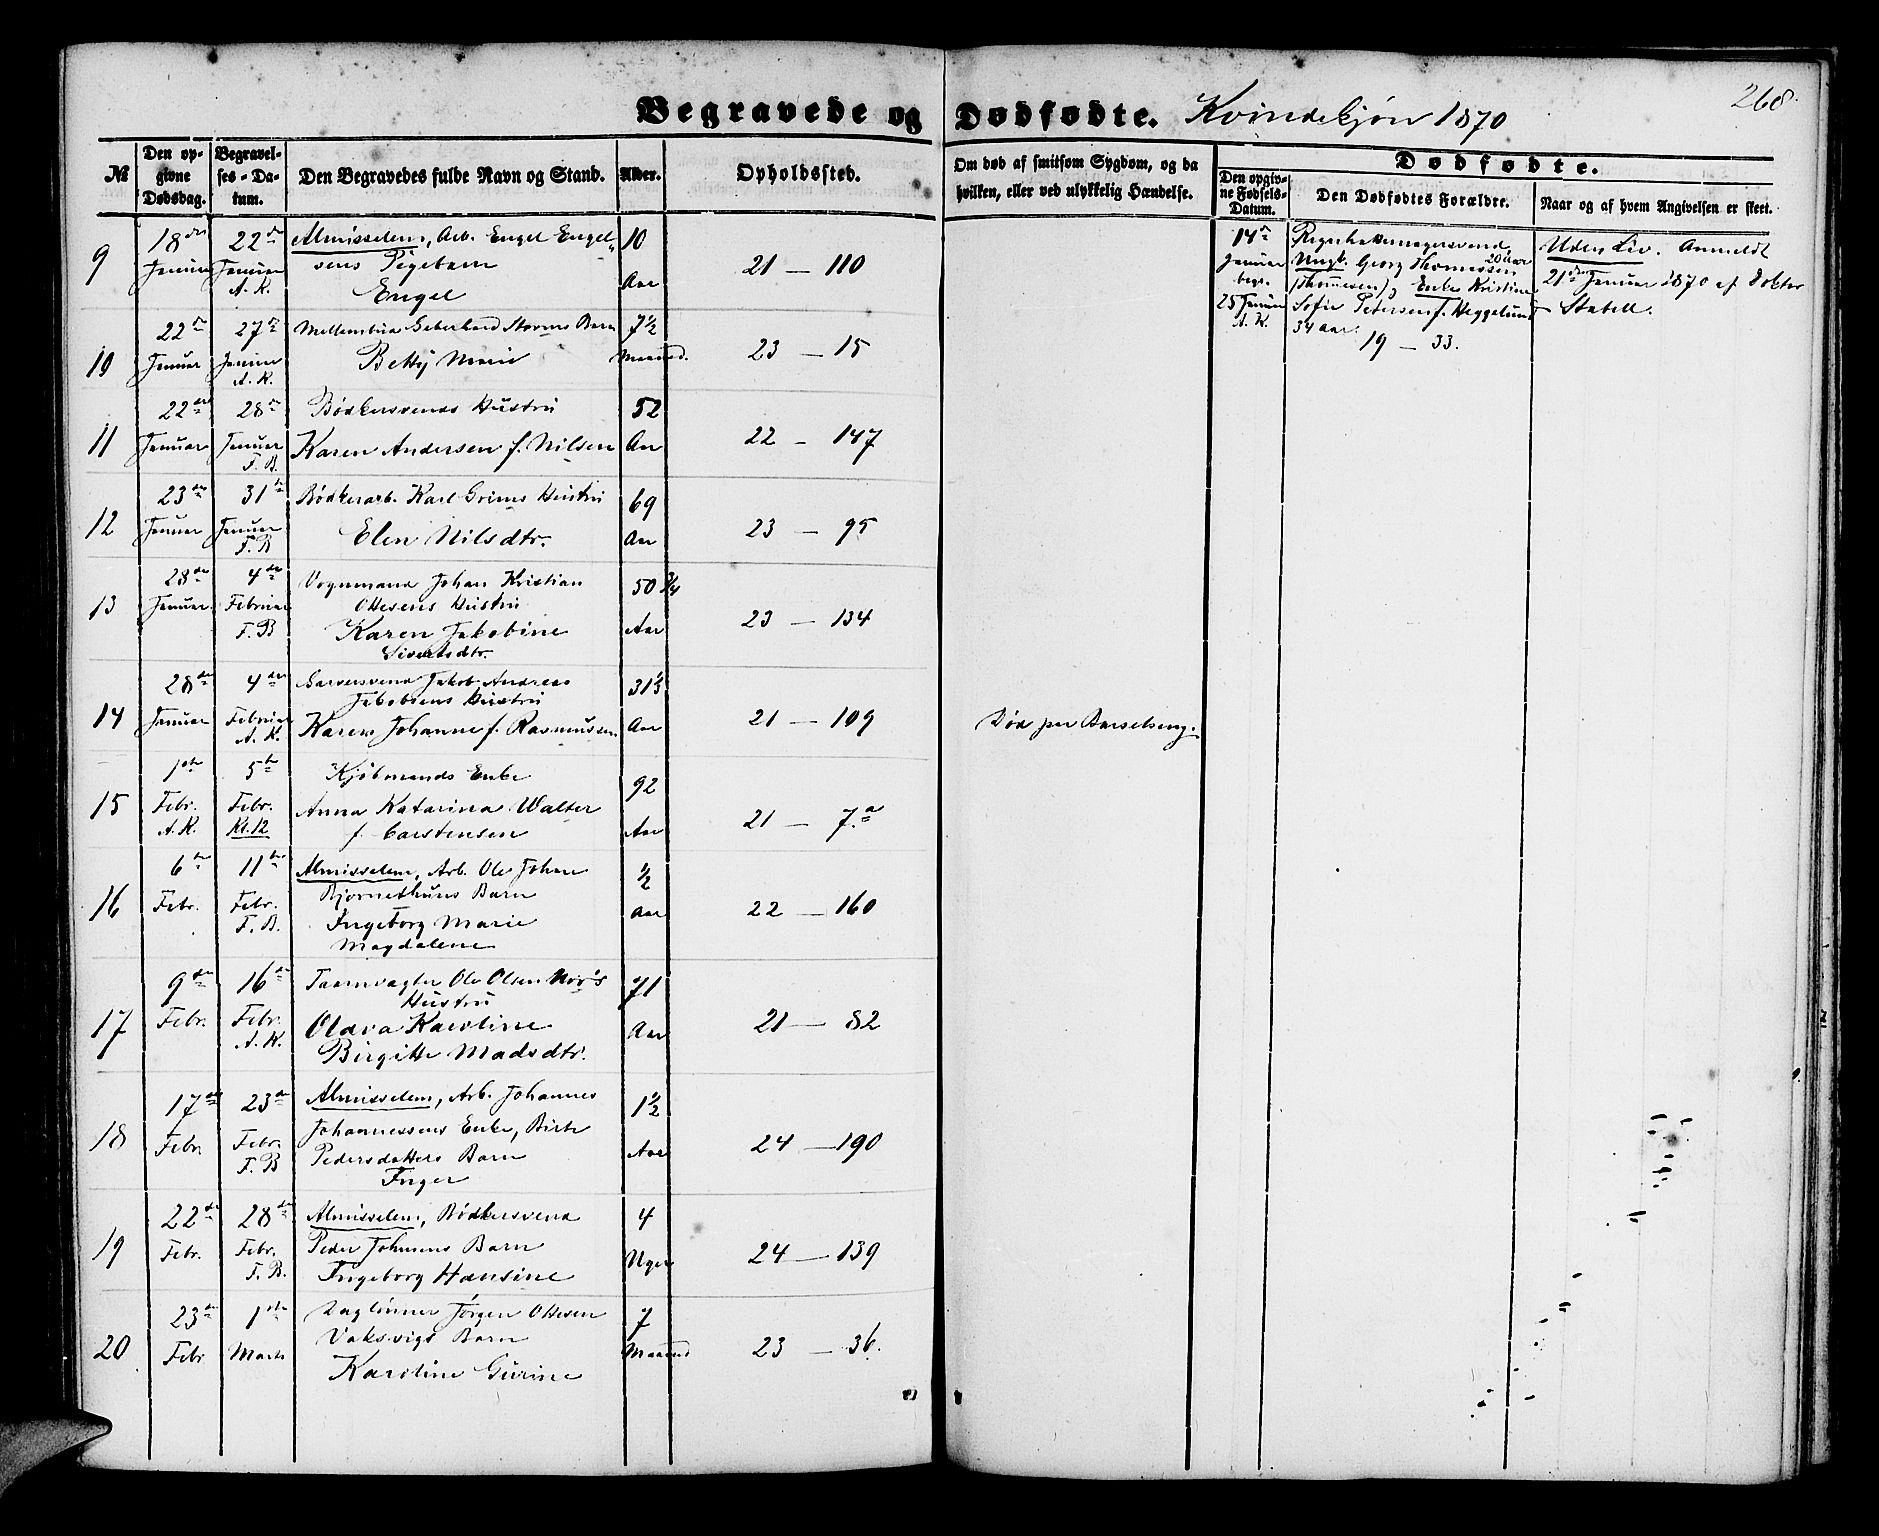 Begravede og Dødfødte. Kvindekjøn 1870
268.
№
Den opgivne Dødsdag.
Begravelses-Datum.
Den Begravedes fulde Navn og Stand.
Alder.
Opholdssted.
Om død af smitsom Sygdom, og da hvilken, eller ved ulykkelig Hændelse.
Dødfødte.
Den opgivne Fødsels-Datum.
Den Dødfødtes Forældre.
Naar og af hvem Angivelsen er skeet.
9
18de Januar
22de Januar A. K.
Almisselem, Arb. Engel Engel-
sens Pigebarn
Engel
10 Aar
21 — 110
14de Januar
begr.
25 Januar
A. K.
Ungk. Georg Thomassen 20 Aar
(Thomesen), Enke Kristine
Sofie Petersen f. Heggelund
34 aar.
19 — 33.
Uden Liv. Anmeldt
21de Januar 1870 af Doktor
Stabell.
10
22de Januar
27de Januar A. K.
Geberhard Storms Barn
Betty Marie
7½ Maaned.
23 — 15
11
22de Januar
28de Januar F. B.
Bødkersvends Hustru
Karen Andersen f. Nilsen
52 Aar
22 — 147
12
23de Januar
31te Januar F. B
Bødkerarb. Karl Grims Hustru
Elen Nilsdtr.
69 Aar
23 — 95
13
28de Januar
4de Februar F. B
Vognmand Johan Kristian
Ottesens Hustru
Karen Jakobine
Sivertsdtr.
50 3/4 Aar
23 — 134
14
28de Januar
4de Februar A. K.
Garversvend Jakob Andreas
Jakobsens Hustru
Karen Johanne f. Rasmussen
31⅓ Aar
21 — 109
Død paa Barselseng.
15
1ste Febr. A. K.
5te Febr. Kl. 12
Kjøbmands Enke
Anna Katarina Walter
f. Carstensen
92 Aar
21 — 7.a
16
6te Febr.
11te Febr. F. B.
Almisselem, Arb. Ole Johan
Bjørnethuns Barn
Ingeborg Marie
Magdalene
½ Aar
22 — 160
17
9de Febr.
16de Febr. A. K.
Taarnvagter Ole Olsen Mov's
Hustru
Olava Karoline
Birgitte Madsdtr.
71 Aar
21 — 82
18
17de Febr
23de Febr. F. B
Almisselem, Arb. Johannes
Johannessens Enke, Birte
Pedersdatters Barn
Inger
1½ Aar
24 — 190
19
22de Febr.
28de Febr. F. B.
Almisselem, Bødkersvend
Peder Johnsens Barn
Ingeborg Hansine
4 Uger
24 — 139
20
23de Febr
1ste Marts
Daglønner Jørgen Ottesen
Vaksvigs Barn
Karoline Gurine
7 Maaned
23 — 36.